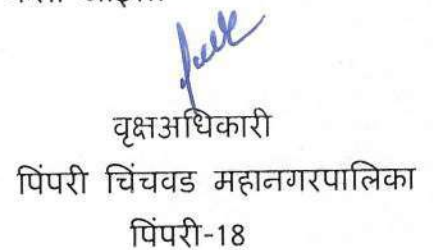 वृक्षअधिकारी
पिंपरी चिंचवड महानगरपालिका
पिंपरी-18